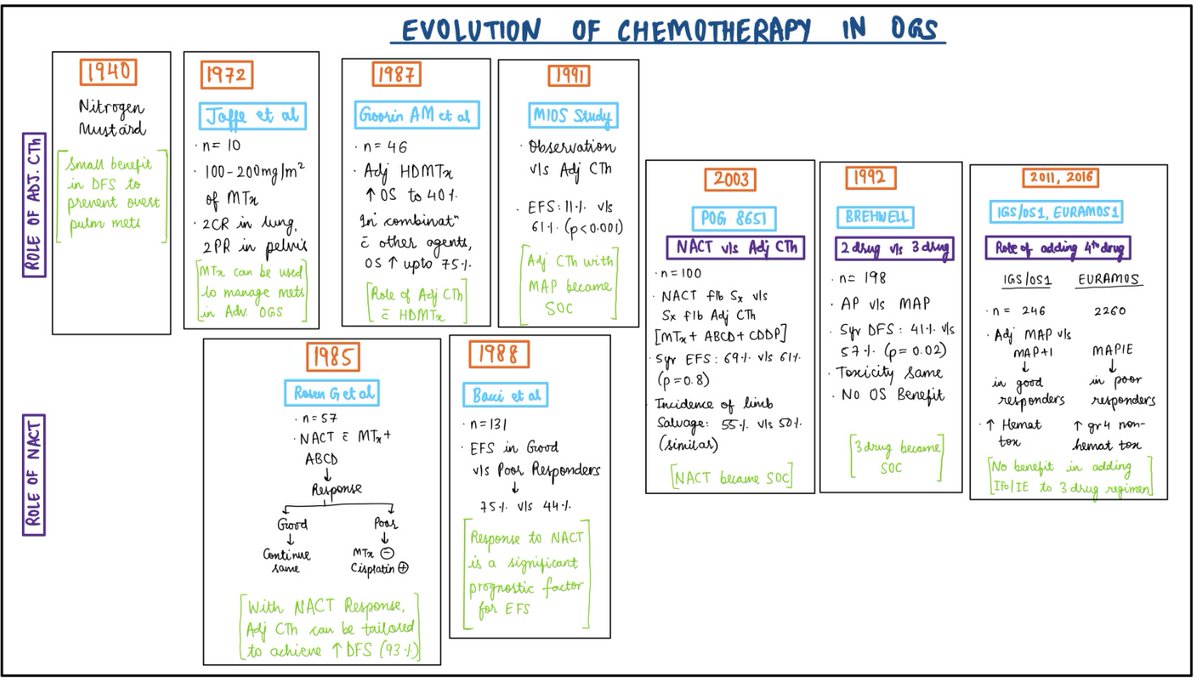 EVOLUTION OF CHEMOTHERAPY IN OGS
ROLE OF ADJ. CTh
1940
Nitrogen
Mustard
[Small benefit
in DFS to
prevent overt
pulm mets]
1972
Jaffe et al
· n= 10
· 100-200mg/m²
of MTx
· 2CR in lung,
2PR in pelvis
[MTx can be used
to manage mets
in Adv OGS]
1987
Goorin AM et al
· n= 46
· Adj HDMTx
↑ OS to 40%.
In combinatⁿ
c̄ other agents,
OS ↑ upto 75%.
[Role of Adj CTh
c̄ HDMTx]
1991
MIOS Study
· Observation
v/s Adj CTh
· EFS: 11% v/s
61% (p<0.001)
[Adj CTh with
MAP became
SOC]
2003
POG 8651
NACT v/s Adj CTh
· n=100
· NACT f/b Sx v/s
Sx f/b Adj CTh
[MTx+ ABCD+ CDDP]
· 5yr EFS: 69% v/s 61%
(p=0.8)
· Incidence of limb
Salvage: 55% v/s 50%
(similar)
[NACT became SOC]
1992
BREHWELL
2 drug v/s 3 drug
· n= 198
· AP v/s MAP
· 5yr DFS: 41% v/s
57% (p=0.02)
· Toxicity Same
· No OS Benefit
[3 drug became
SOC]
2011, 2016
IGS/OS1, EURAMOS1
Role of adding 4th drug
IGS/OS1 EURAMOS
· n = 246 2260
· Adj MAP v/s
MAP+I MAPIE
↓ ↓
in good in poor
responders responders
· ↑ Hemat ↑ gr4 non-
tox hemat tox
[No benefit in adding
Ifo/IE to 3 drug regimen]
ROLE OF NACT
1985
Rosen G et al
· n=57
· NACT c̄ MTx+
ABCD
↓
Response
Good Poor
↓ ↓
Continue MTx ⊖
same Cisplatin ⊕
[With NACT Response,
Adj CTh can be tailored
to achieve ↑ DFS (93%)]
1988
Bacci et al
· n=131
· EFS in Good
v/s Poor Responders
↓
75% v/s 44%.
[Response to NACT
is a significant
prognostic factor
for EFS]